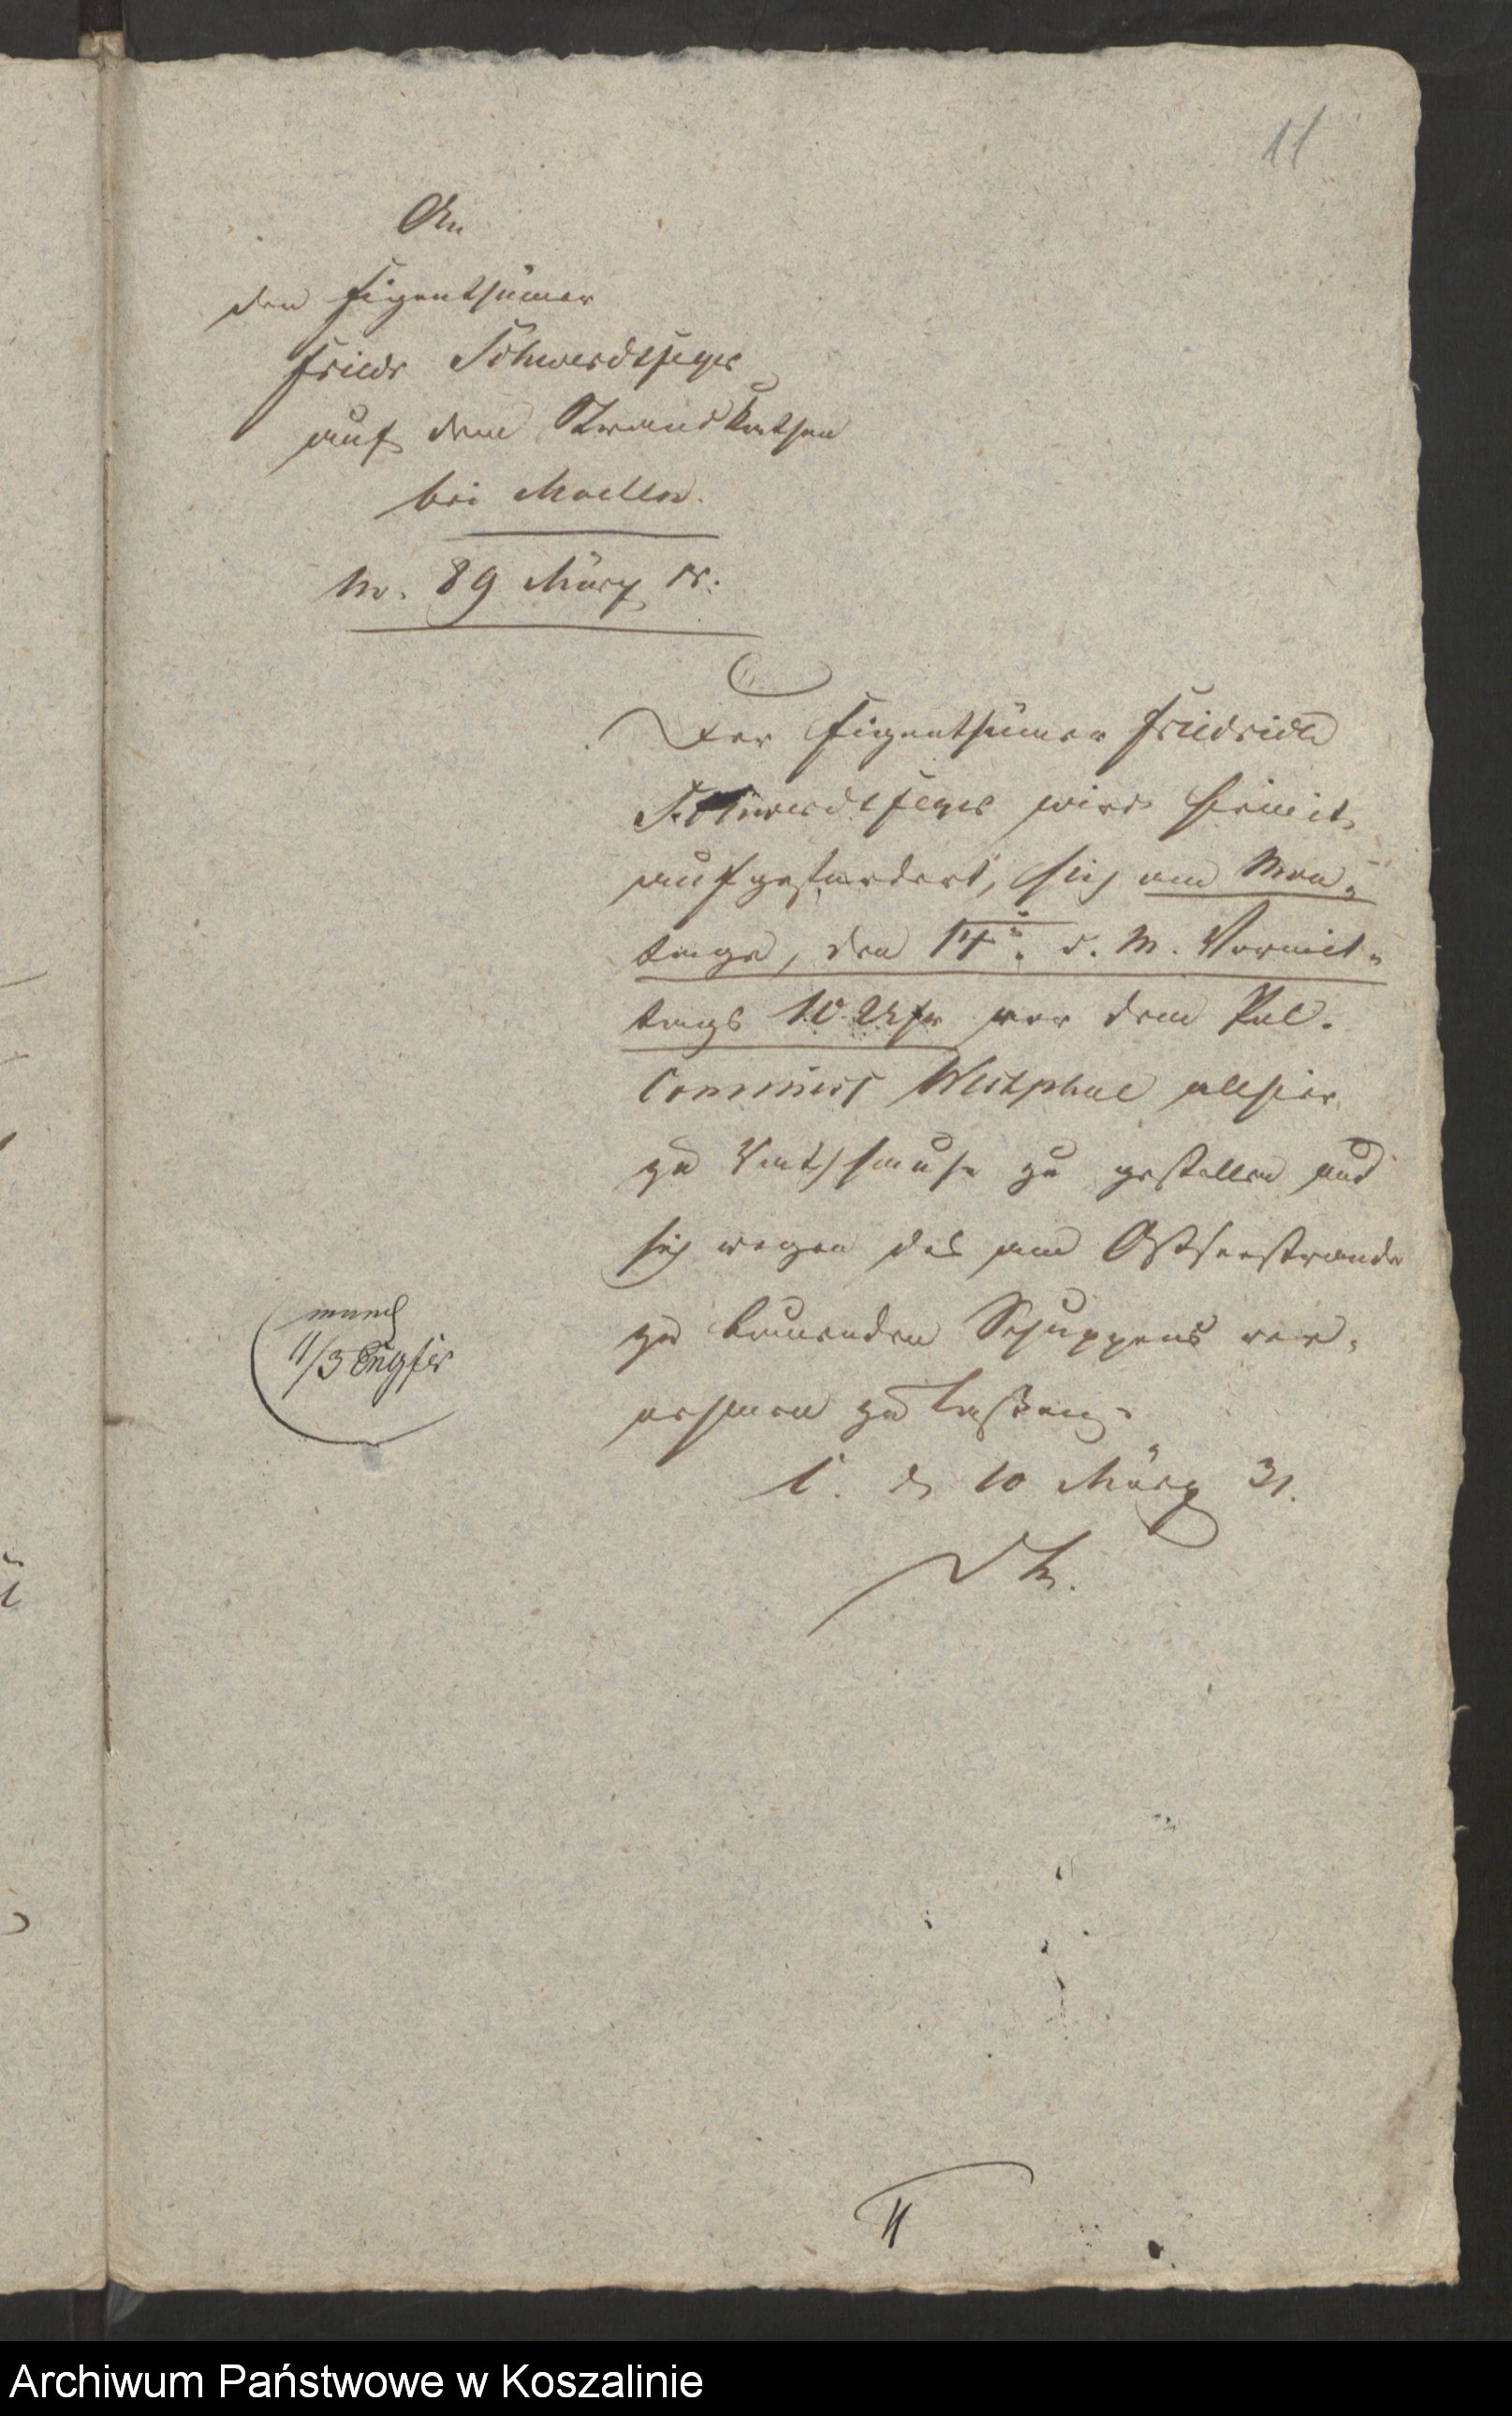 11
An
den Eigenthümer
Friedr Schwerdtfeger
auf dem Strandkathen
bei Moellen.
No. 89 März
Der Eigenthümer Friedrich
Schwerdtfeger wird hiemit
aufgefordert, sich am Mon-
tage, den 14t. d. M. Vormit-
tags 10 Uhr vor dem Pol.
Commiss Westphal allhier
zu Rathhause zu gestellen und
sich wegen des am Ostseestrande
zu bauenden Schuppens ver-
nehmen zu laßen.
C. d 10 März 31.
D M.
mund
11/3
11
Archiwum Państwowe w Koszalinie